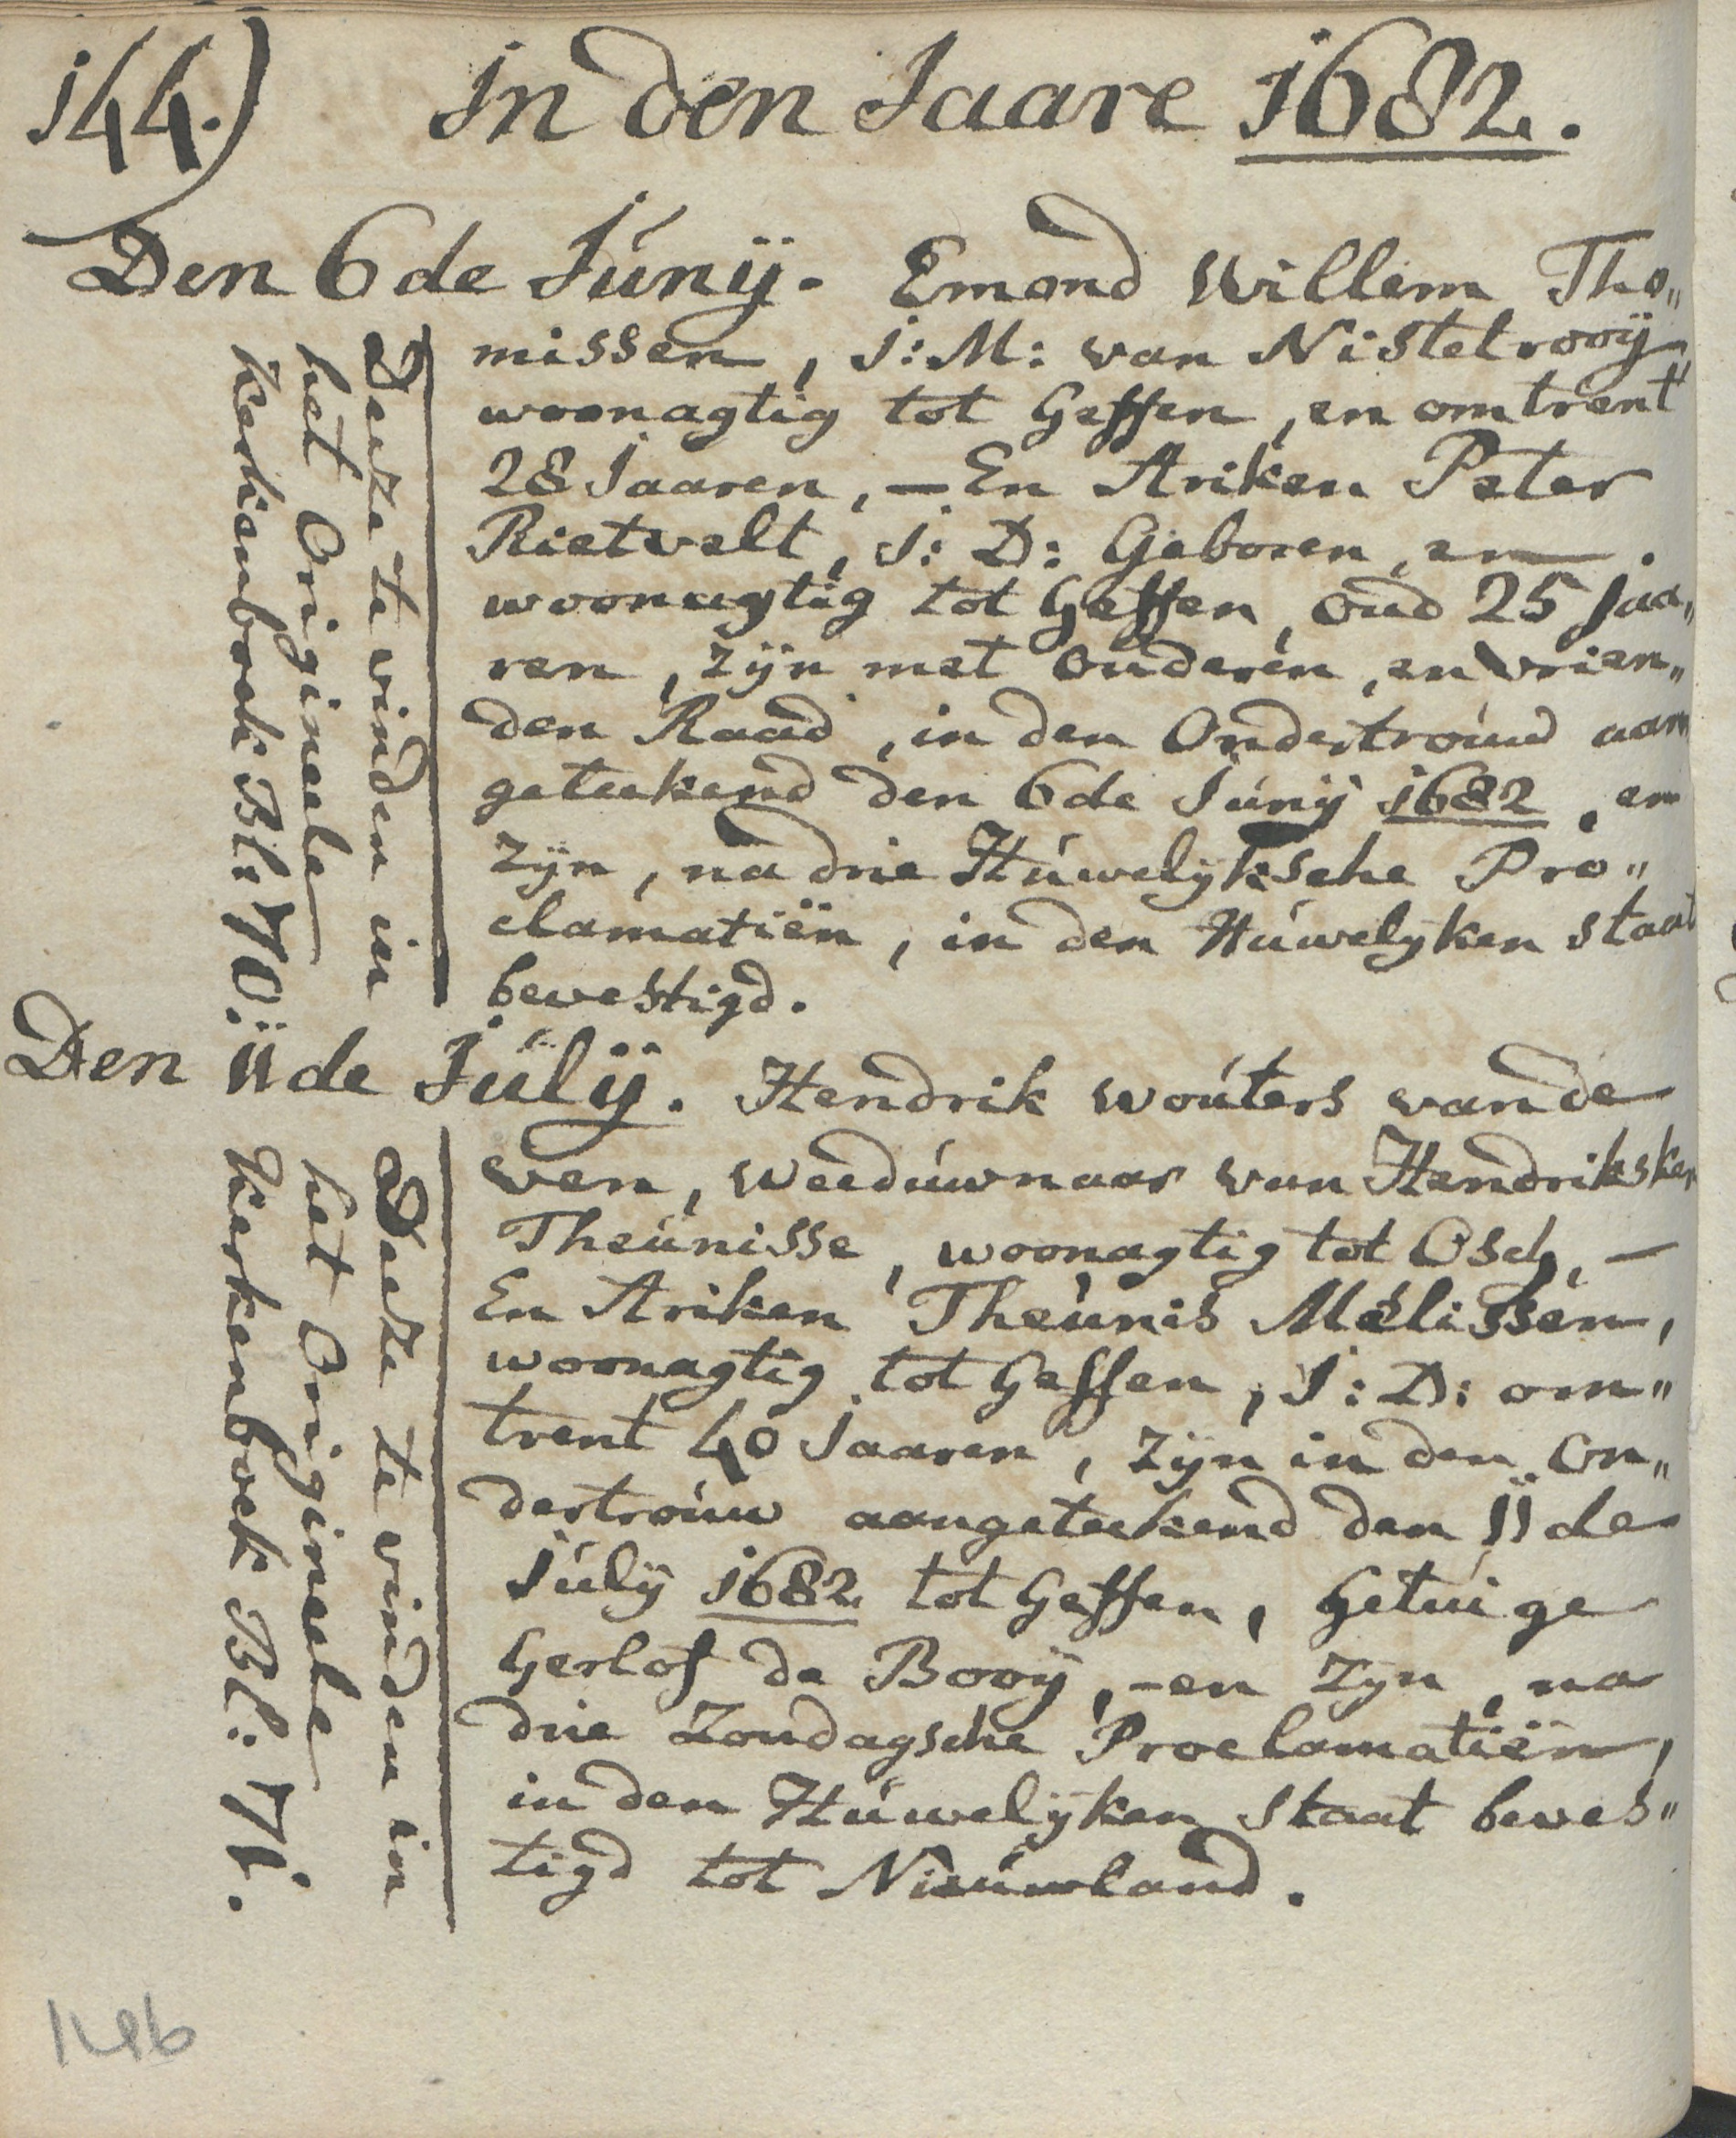 144.) in den Jaare 1682.
Den 6de Júnij. Emond Willem Tho„
missen, J:M: van Nistelrooij,
woonagtig tot Geffen, en omtrent
28 Jaaren, — En Ariken Peter
Rietvelt, J: D: Geboren, en
woonagtig tot Geffen, oud 25 Jaa„
ren, zijn met Ouderen, en vrien„
den Raad, in den Ondertrouw aan
geteekend den 6de Júnij 1682, en
zijn, na drie Húwelijksche Pro„
clamatiën, in den Húwelijken staat
bevestigd.
Deeze te vinden in
het Origineele
Kerkenboek Bl: 70.
Den 11de Júlij. Hendrik Woúters van de
ven, Weedúwnaar van Hendriksken
Theúnisse, woonagtig tot Osch, —
En Ariken Theúnis Melissen,
woonagtig tot Geffen, J: D: om„
trent 40 Jaaren, zijn in den On„
dertroúw aangeteekend den 11de
Júlij 1682 tot Geffen, Getúige
Gerlof de Booij, - en zijn, na
drie Zondagsche Proclamatiën,
in den Húwelijken staat beves„
tigd tot Nieúwland.
Deeze te vinden in
het Origineele
Kerkenboek Bl: 71.
146